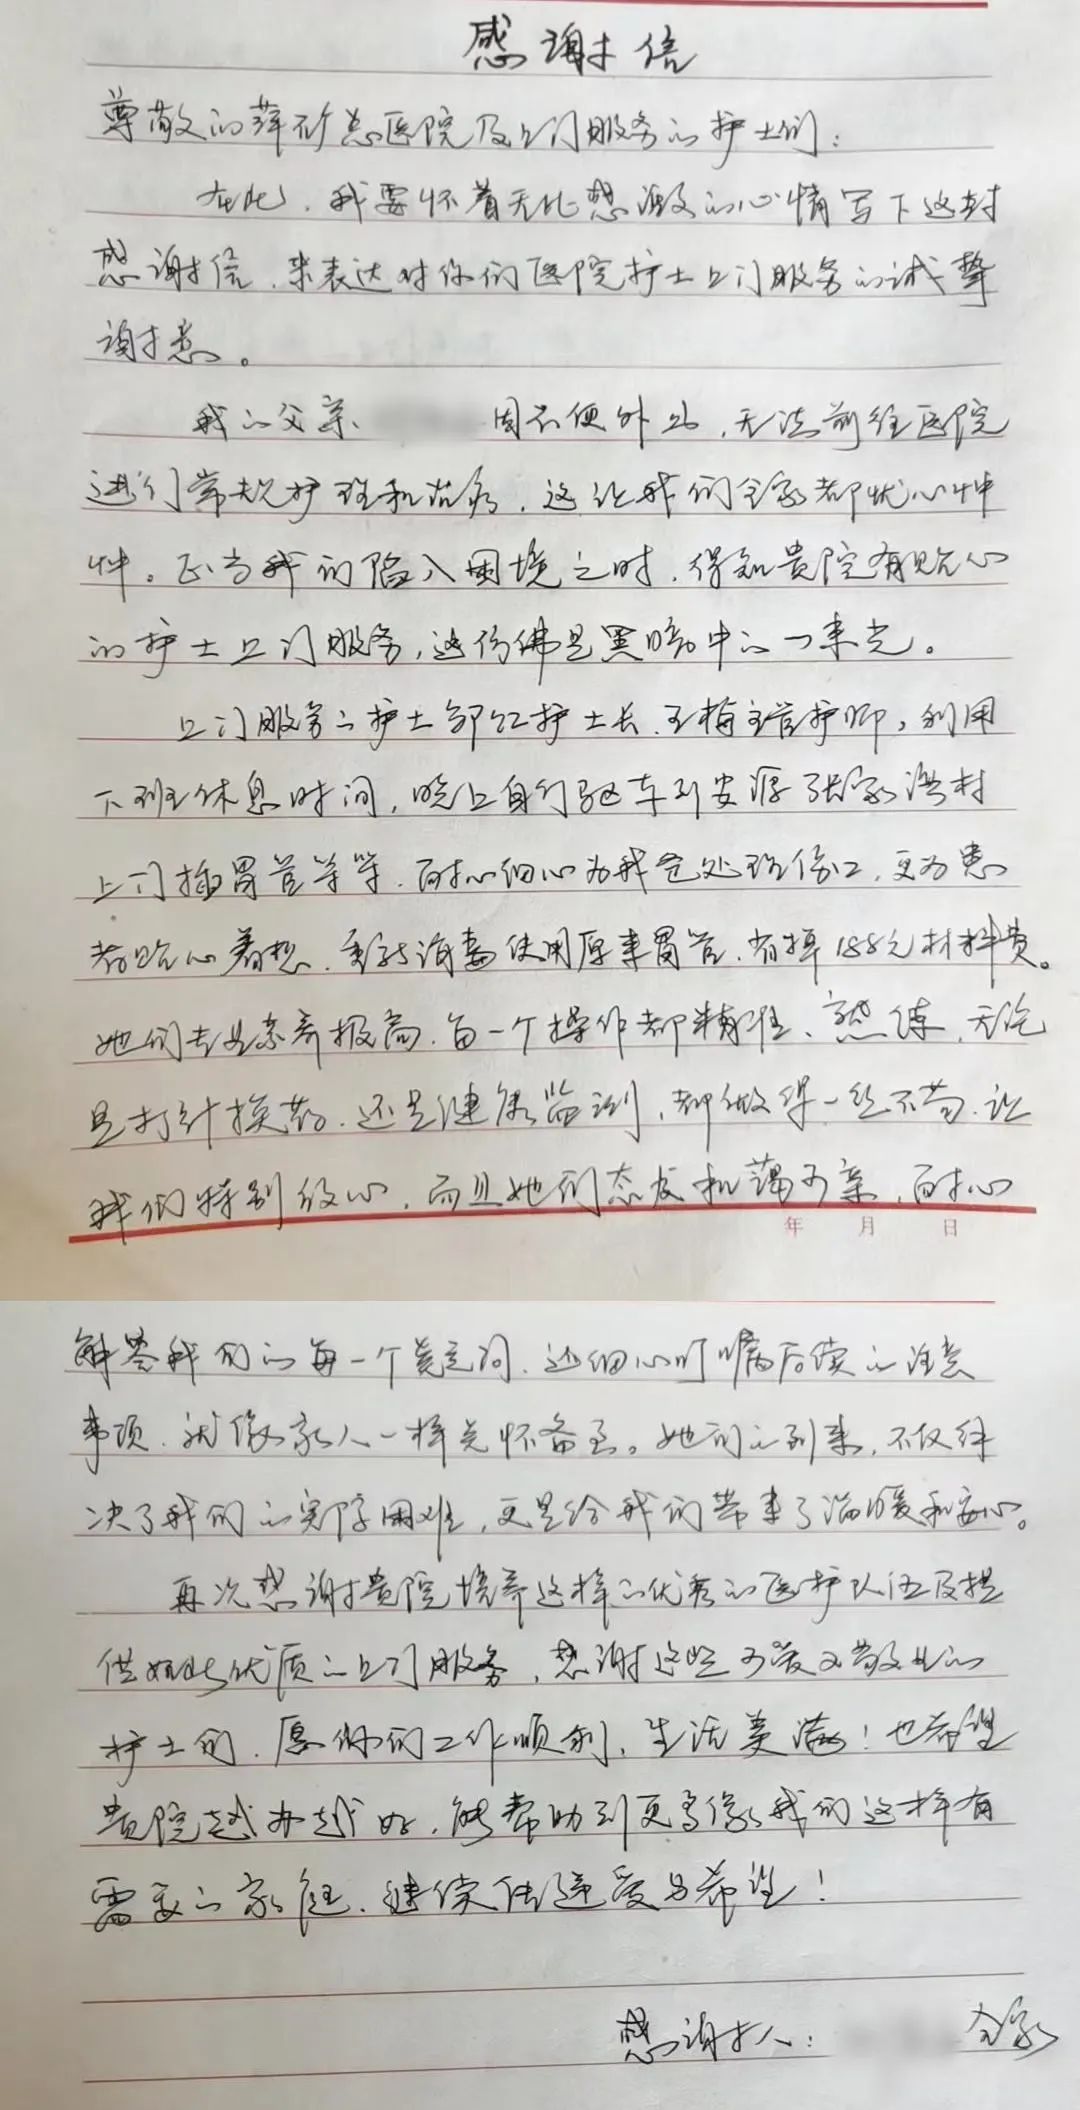 感谢信
尊敬的萍矿总医院及上门服务的护士们：
在此，我要怀着无比感激的心情写下这封
感谢信，来表达对你们医院护士上门服务的诚挚
谢意。
我的父亲 因不便外出，无法前往医院
进行常规护理和治疗，这让我们全家都忧心忡
忡。正当我们陷入困境之时，得知贵院有贴心
的护士上门服务，这仿佛是黑暗中的一束光。
上门服务的护士邹红护士长、王梅主管护师，利用
下班休息时间，晚上自行驱车到安源张家湾村
上门插胃管等等，耐心细心为我爸处理伤口，更为患
者贴心着想，重新消毒使用原来胃管，省掉188元材料费。
她们专业素养极高，每一个操作都精准、熟练，无论
是打针换药，还是健康监测，都做得一丝不苟，让
我们特别放心，而且她们态度和蔼可亲，耐心
年 月 日
解答我们的每一个疑问，还细心叮嘱后续的注意
事项，就像家人一样关怀备至。她们的到来，不仅解
决了我们的实际困难，更是给我们带来了温暖和安心。
再次感谢贵院培养这样的优秀的医护队伍及提
供如此优质的上门服务，感谢这些可爱又敬业的
护士们，愿你们工作顺利，生活美满！也希望
贵院越办越好，能帮助到更多像我们这样有
需要的家庭，继续传递爱与希望！
感谢人： 全家